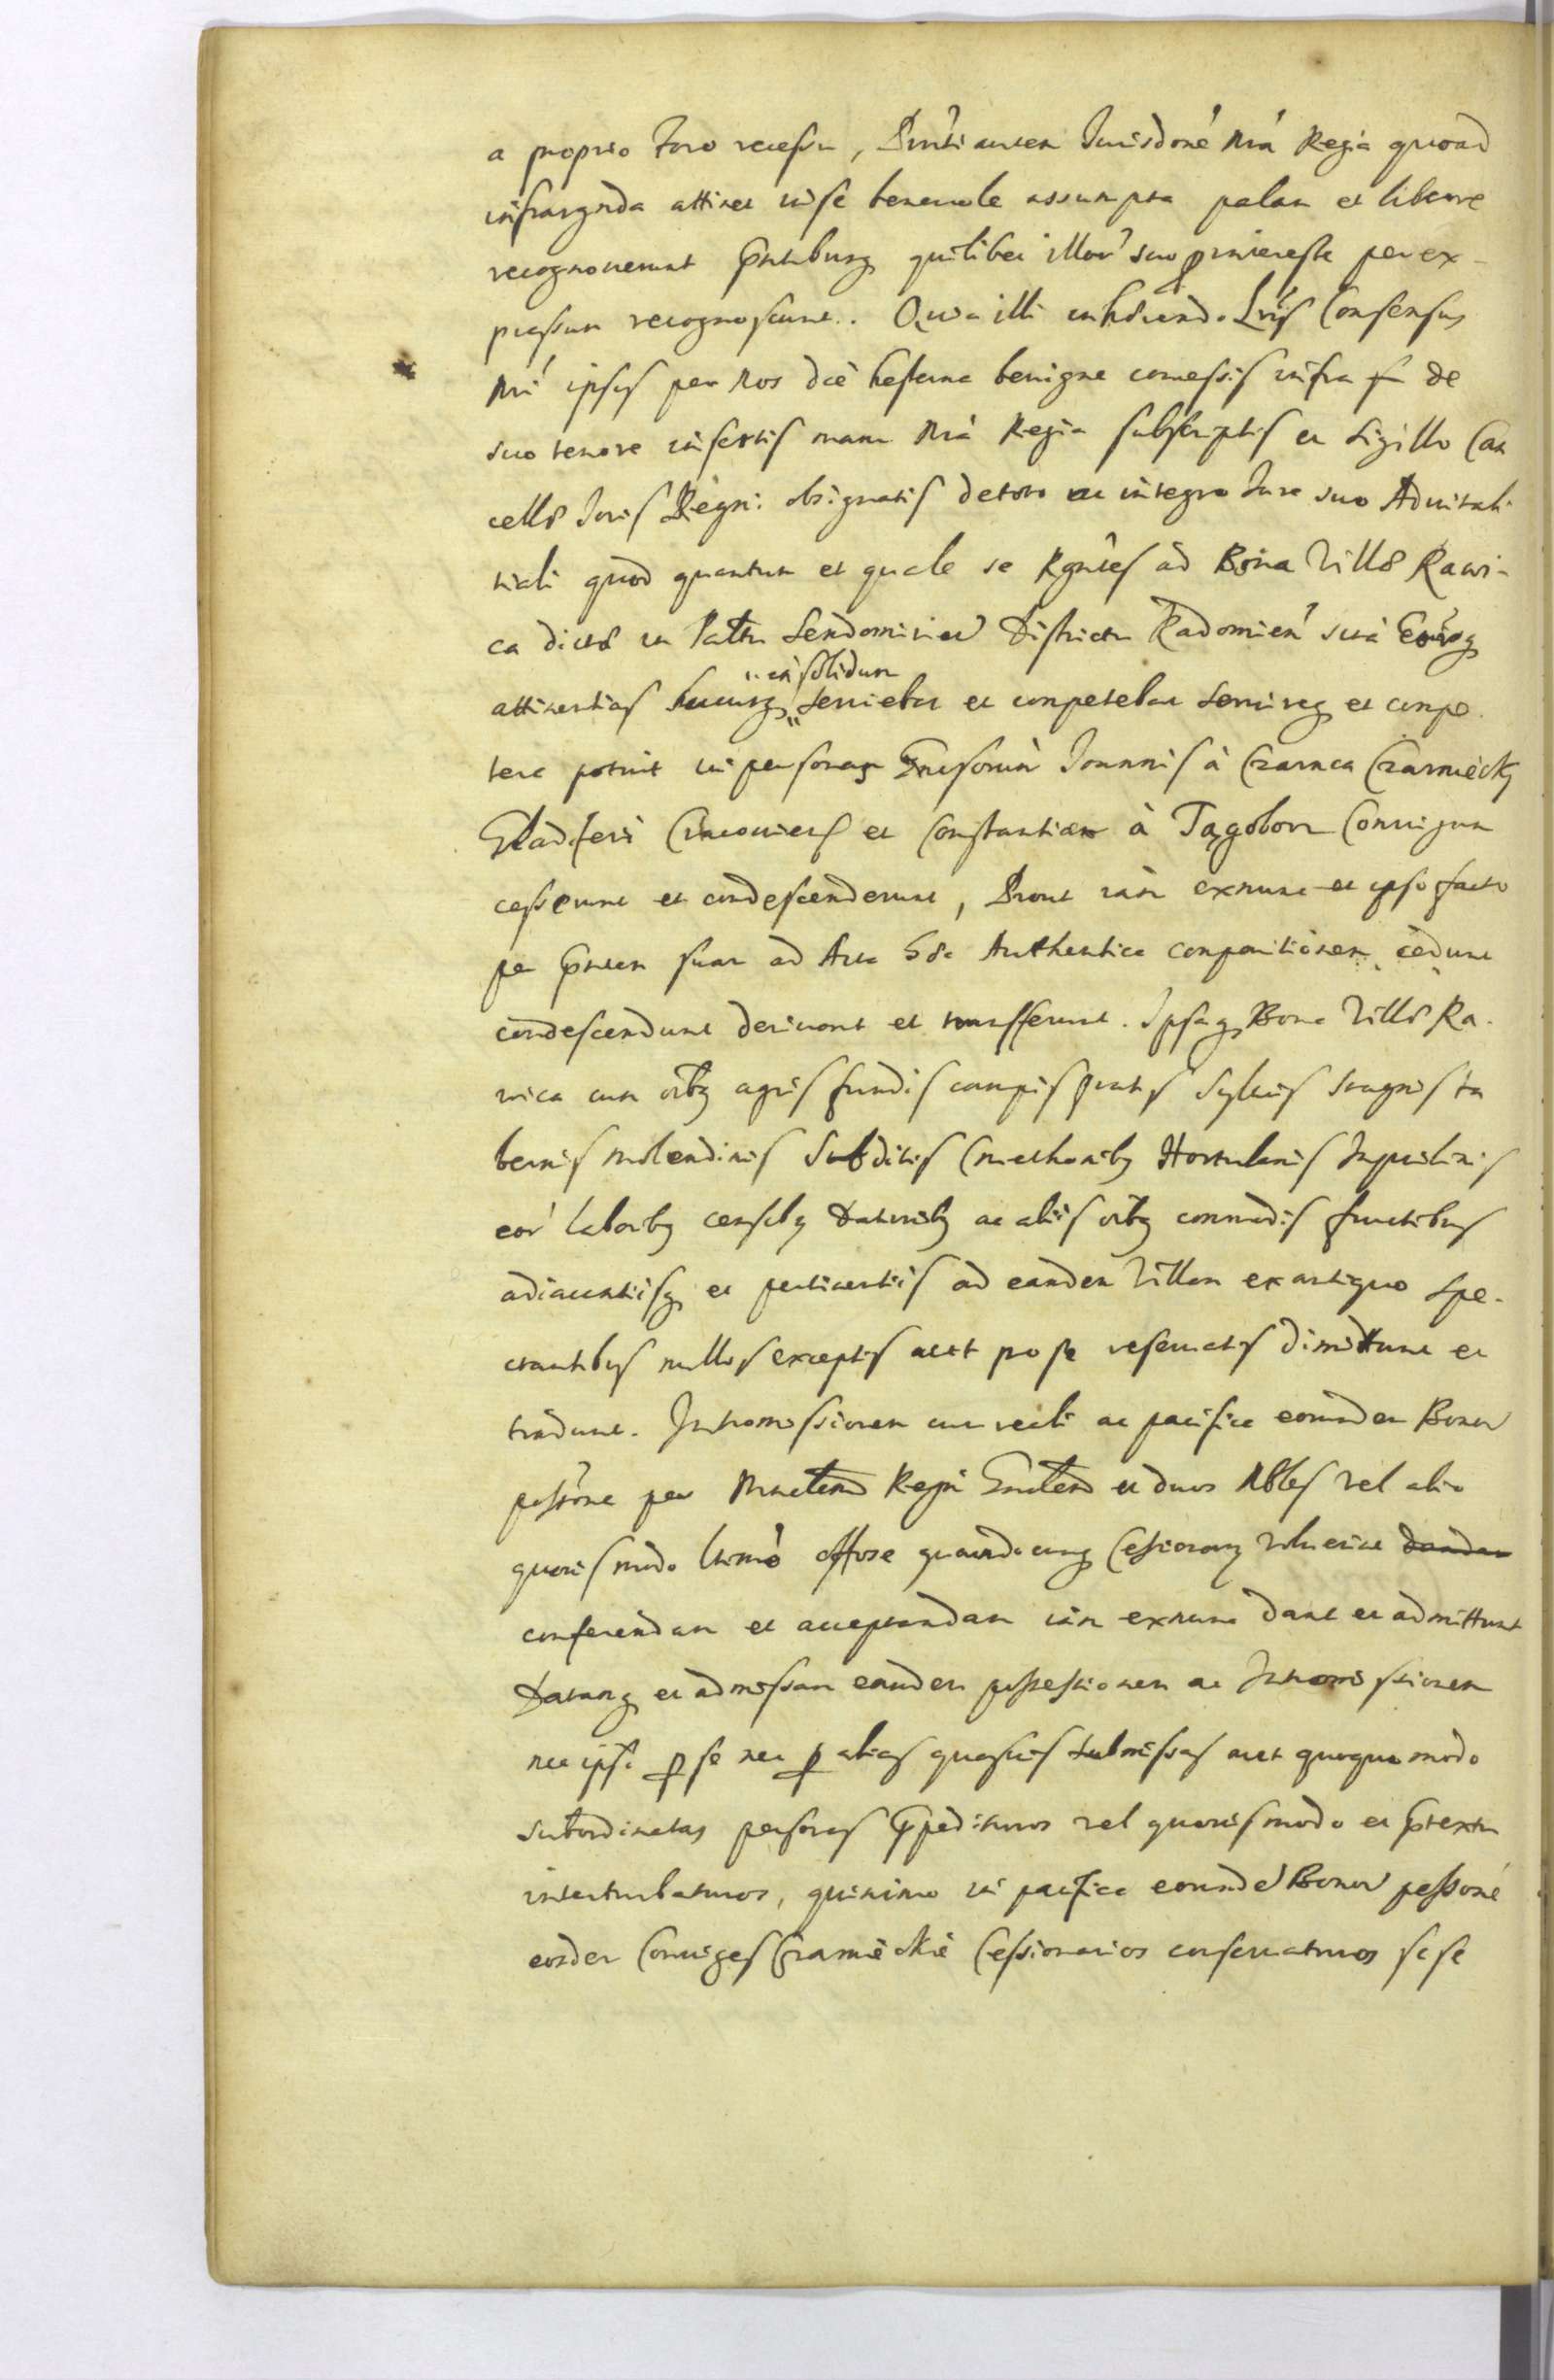 a proprio Foro recessu, Pnti autem Jurisdõne Nrã Regia quoad
infrascripta attinet in se benevole assumpta palam et libere
recognoverunt pntibusq quilibet illor suo pro interesse per ex-
pressum recognoscunt. Quia illi inhaerendo Lris Consensus
Nri ipsis per Nos die hesterna benigne concessis infra de
suo tenore insertis manu Nrã Regia subscriptis et Sigillo Can
cellae Regni obsignatis de toto et integro Jure suo Advitali
tiali quod quantum et quale se Rgntes ad Bona Villae Rawi-
ca dictae in Pattu Sendomirien Districtu Radomien sita Eorúq
attinentias hucusq „in solidum„ serviebat et competebat servireq et compe
tere potuit in personas Gnrsorum Joannis à Czarnca Czarniecky
Gladiferi Cracovien et Constantiae à Tęgobor Coniugum
cesserunt et condescenderunt, Prout iam exnunc et ipso facto
per pntem suar ad Acta haec Authentica comparitionem cedunt
condescendunt derivant et transferunt. Ipsaq Bona Villae Ra-
wica cum oibq agris fundis campis pratis Sylvis stagnis ta
bernis molendinis Subditis Cmethonibq Hortulanis Inquilinis
eor laboribq censibq daturibq ac aliis oibq commodis fructibus
adiacentiisq et pertinentiis ad eandem Villam ex antiquo spe-
ctantibus nullis exceptis aut pro se reservatis dimittunt et
tradunt. Intromissionem cum reali ac pacifica eorundem Bonor
possõne per Mnrlem Regni Gnrlem et duos Nbles vel alio
quovis modo ltimo offose quandocunq Cessionarq voluerint dandam
conferendam et acceptandam iam exnunc dant et admittunt
Datamq et admissam eandem possessionem ac Intromissionem
nec ipsi p se nec p alias quasvis submissas aut quoquo modo
subordinatas personas impedituros vel quovis modo et ptextu
interturbaturos, quinimo in pacifica eorunde Bonor possone
eosdem Coniuges Czarnieckie Cessionarios conservaturos sese